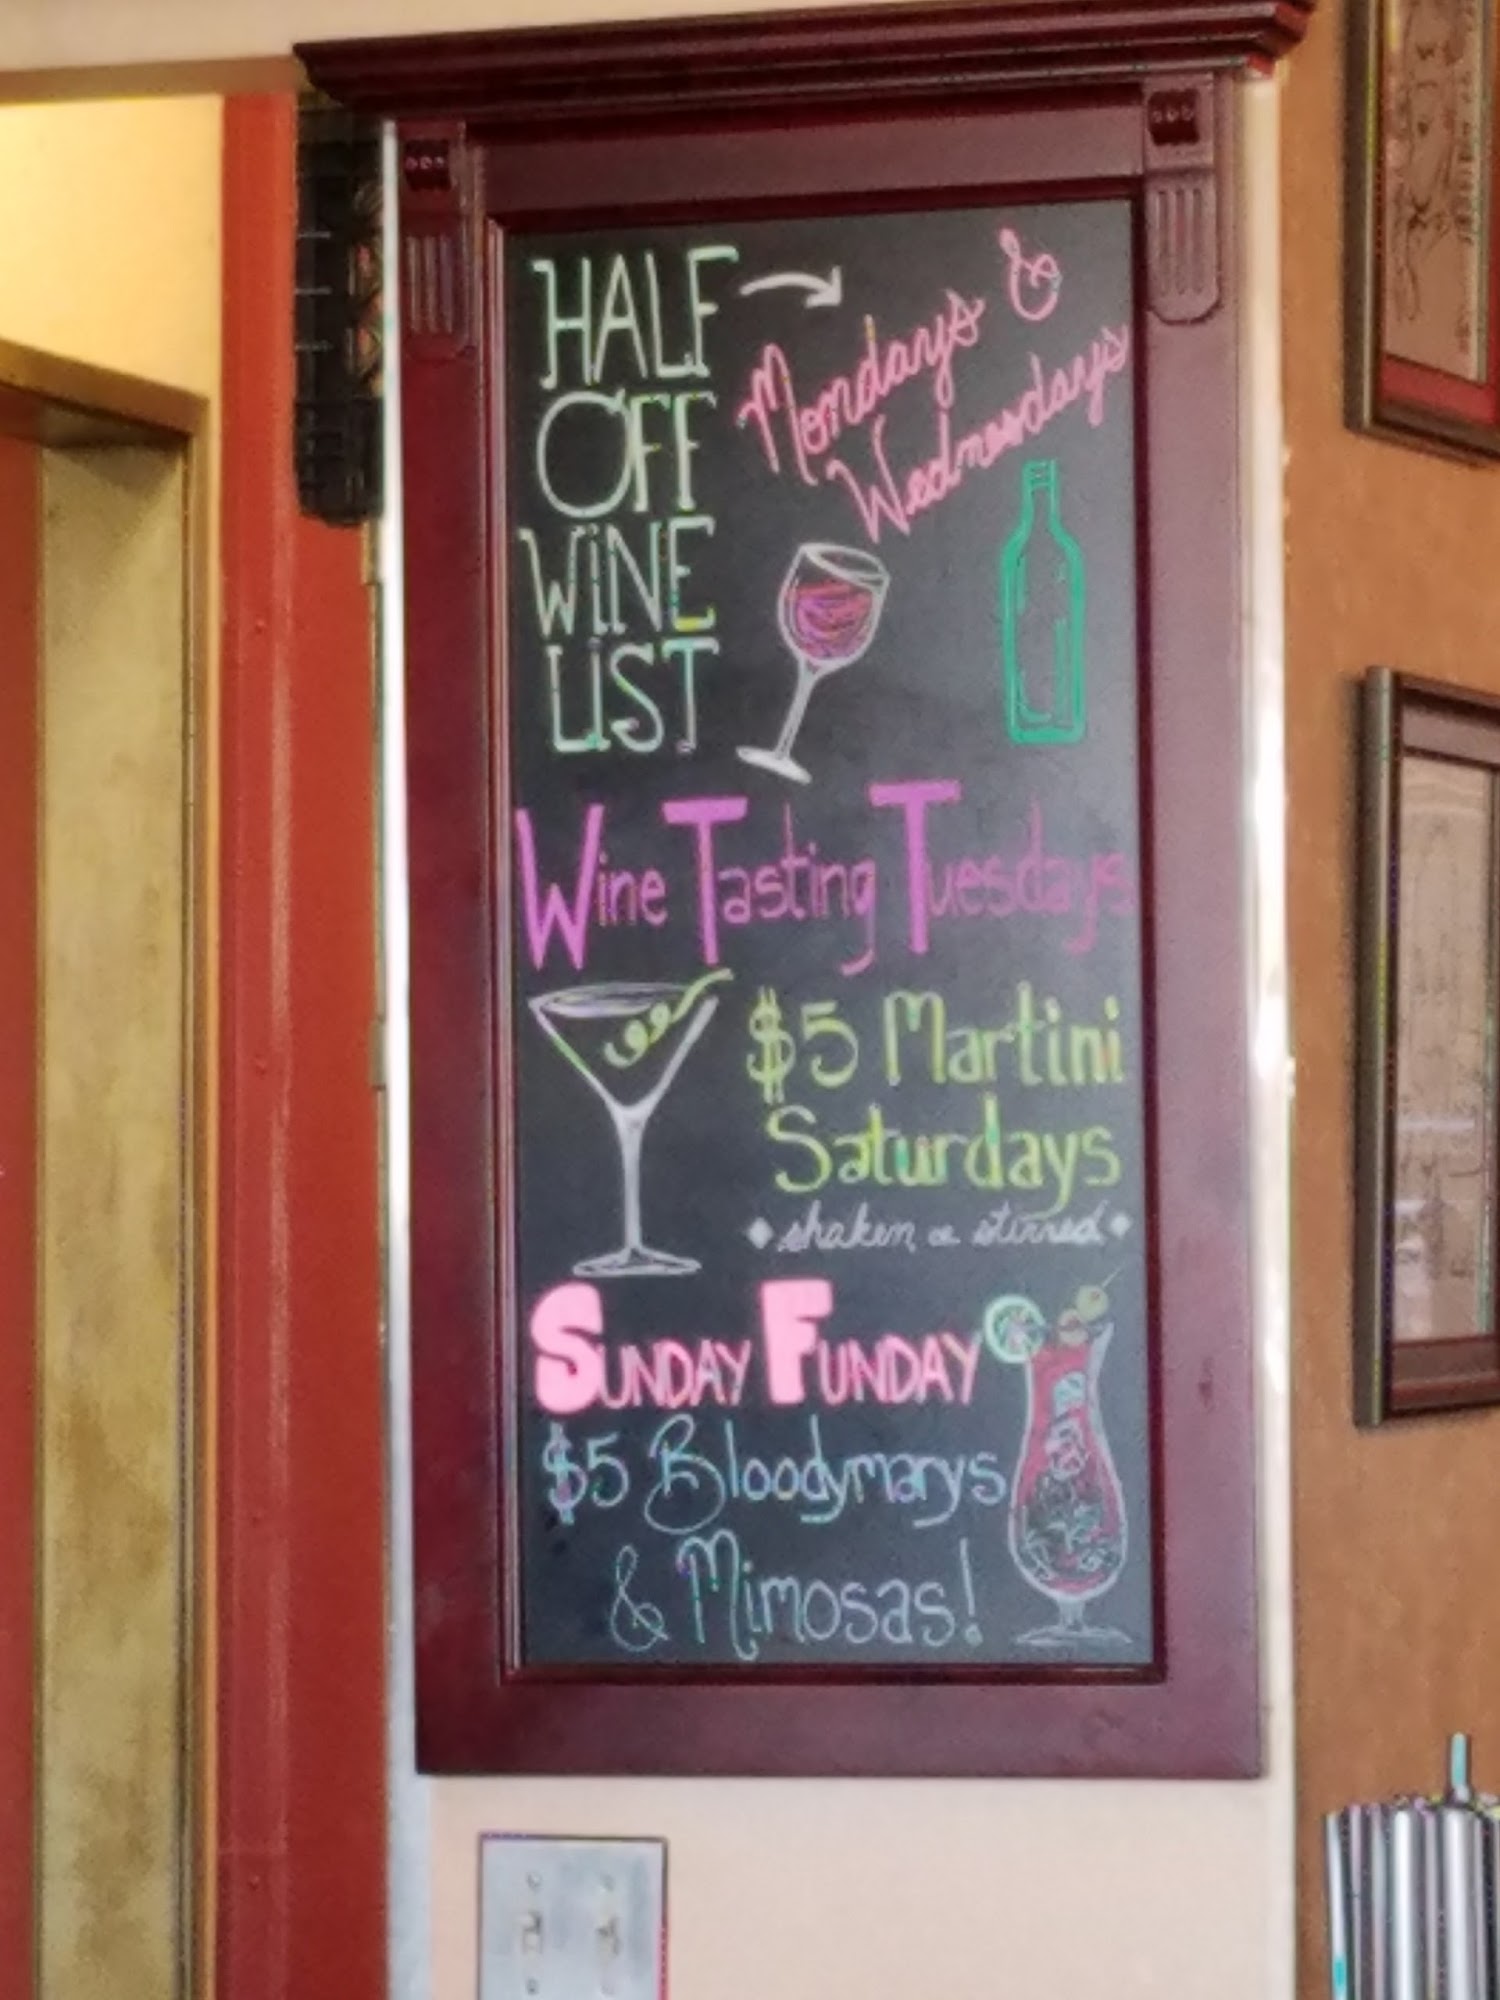 HALF
OFF
WINE
LIST
Mondays &
Wednesdays
Wine Tasting Tuesdays
$5 Martini
Saturdays
shaken or stirred
SUNDAY FUNDAY
$5 Bloodymarys
& Mimosas!